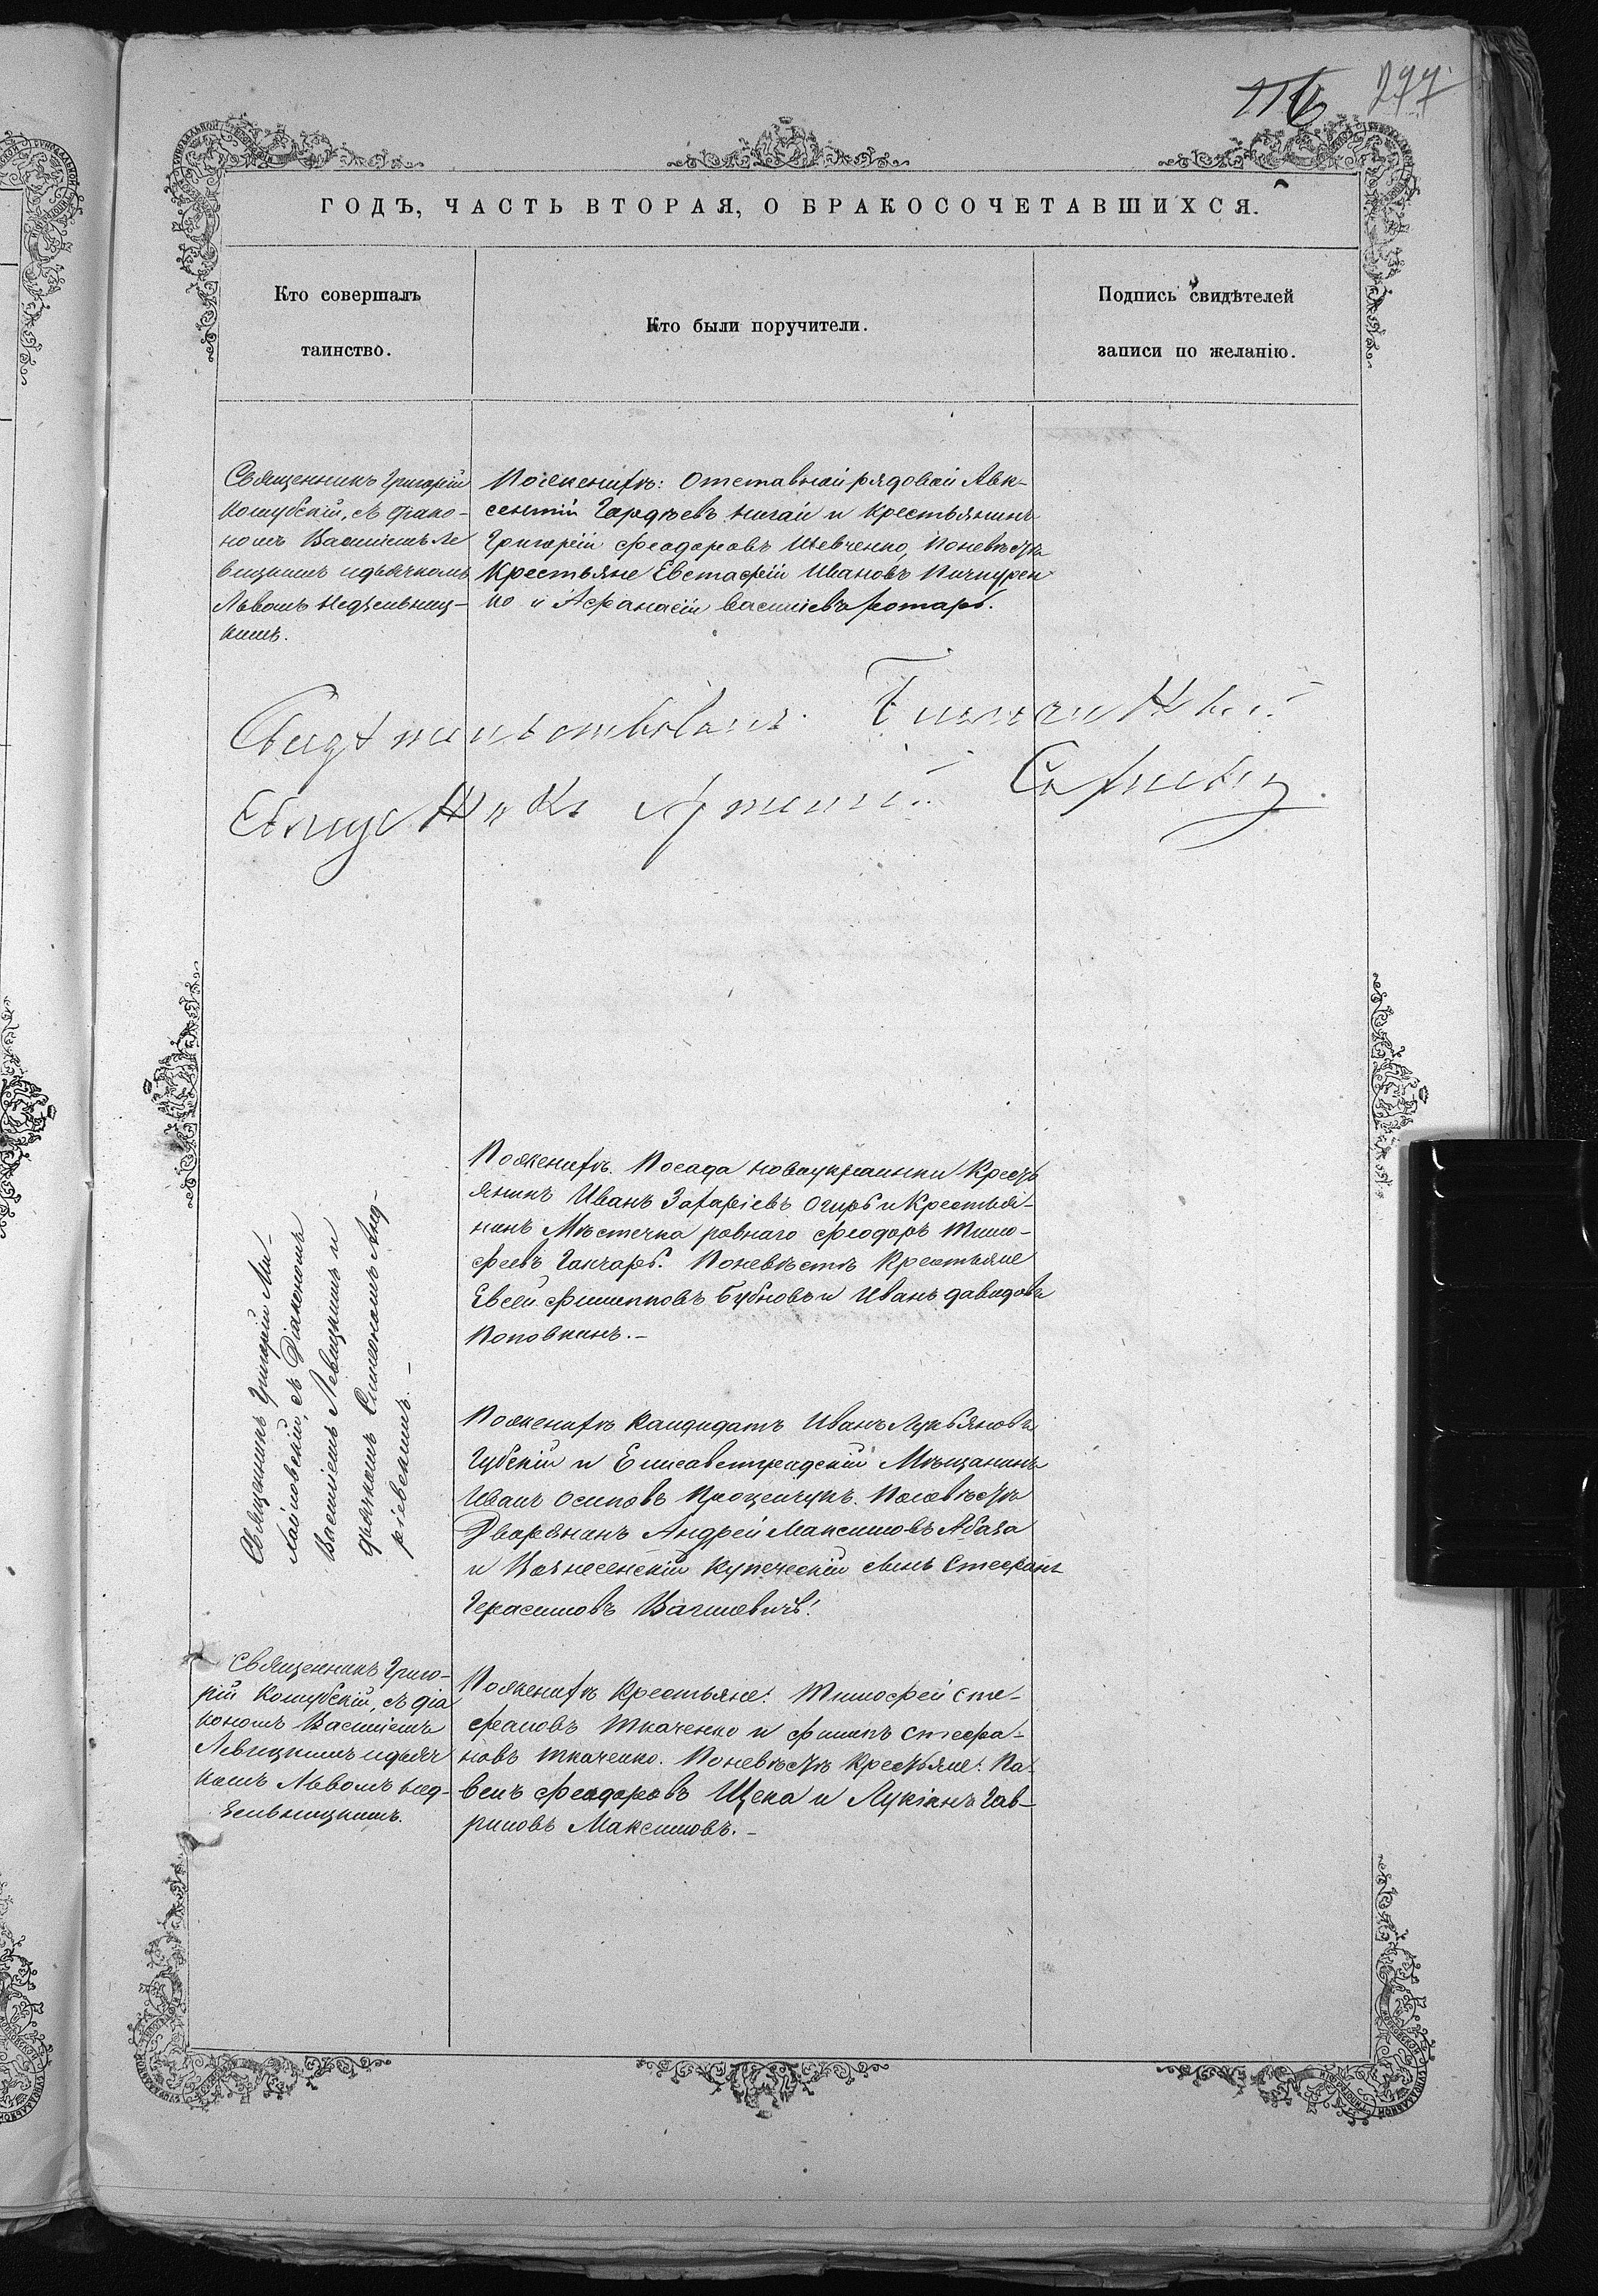 116 277
ГОДЪ, ЧАСТЬ ВТОРАЯ, О БРАКОСОЧЕТАВШИХСЯ.
Кто совершалъ
таинство.
Кто были поручители.
Подпись свидѣтелей
записи по желанію.
Священникъ Григорій
Кошубскій, съ діако-
номъ Василіемъ Ле
вицкимъ и дьячкомъ
Львомъ Недзельниц-
кимъ.
По женихѣ: отставной рядовой Авк-
сентій Гордѣевъ и крестьянинъ
Григорій Феодоровъ Шевченко, по невѣстѣ
Крестьяне Евстафій Ивановъ Пичкурен
ко и Афанасій Василіевъ Ротарь.
Свидѣтельствовалъ Благочинный
Священникъ Софиевъ
Священникъ Григорій Ми-
хайловскій, съ Діакономъ
Василіемъ Левицкимъ и
дьячкомъ Симеономъ Анд-
ріевскимъ.-
По женихѣ. Посада Новоукраинки Крестъ
янинъ Иванъ Захаріевъ Огирь и Крестья-
нинъ Мѣстечка Ровнаго Феодоръ Тимо-
феевъ Ганчарь. По невѣстѣ Крестьяне
Евсей Филипповъ Бубновъ и Иванъ Давидовъ
Поповкинъ.-
По женихѣ Кандидатъ Иванъ Лукьяновъ
Губскій и Елисаветградскій Мѣщанинъ
Иванъ Осиповъ Проценчукъ. По невѣстѣ
Дворянинъ Андрей Максимовъ Абаза
и Вознесенскій купеческій сынъ Стефанъ
Герасимовъ
Священникъ Григо-
рій Кошубскій, съ діа
кономъ Василіемъ
Левицкимъ и дьяч
комъ Львомъ Нед-
зельницкимъ.
По женихѣ Крестьяне: Тимофей Сте-
фановъ Ткаченко и Филипъ Стефа-
новъ Ткаченко. По невѣстѣ Крестьяне: Па-
велъ Феодоровъ Щека и Лукіанъ Гав-
риловъ Максимовъ.-